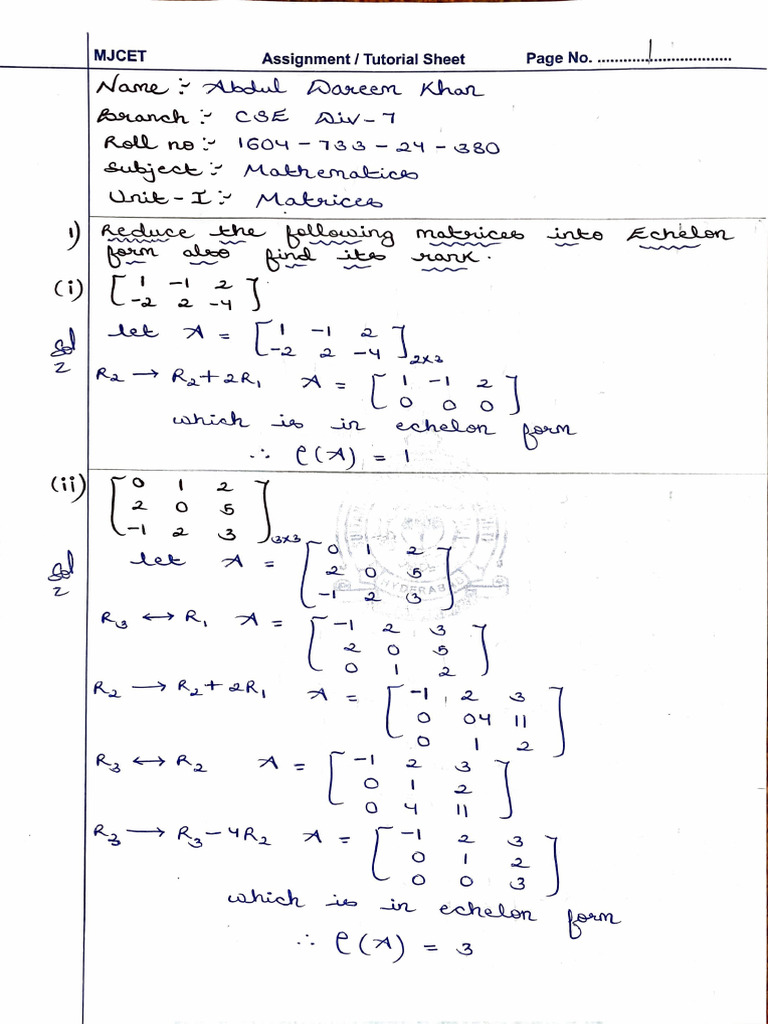 MJCET Assignment / Tutorial Sheet Page No. 1
Name :- Abdul Dareen Khan
Branch :- CSE Div-7
Roll no :- 1604-733-24-380
Subject :- Mathematics
Unit-I :- Matrices
1) Reduce the following matrices into Echelon
form also find its rank.
(i) [ 1 -1 2
-2 2 -4 ]
Sol let A = [ 1 -1 2
-2 2 -4 ]2×3
R2 → R2+2R1 A = [ 1 -1 2
0 0 0 ]
which is in echelon form
∴ ρ(A) = 1
(ii) [ 0 1 2
2 0 5
-1 2 3 ]3×3
Sol let A = [ 0 1 2
2 0 5
-1 2 3 ]
HYDERABAD
R3 ↔ R1 A = [ -1 2 3
2 0 5
0 1 2 ]
R2 → R2+2R1 A = [ -1 2 3
0 04 11
0 1 2 ]
R3 ↔ R2 A = [ -1 2 3
0 1 2
0 4 11 ]
R3 → R3-4R2 A = [ -1 2 3
0 1 2
0 0 3 ]
which is in echelon form
∴ ρ(A) = 3